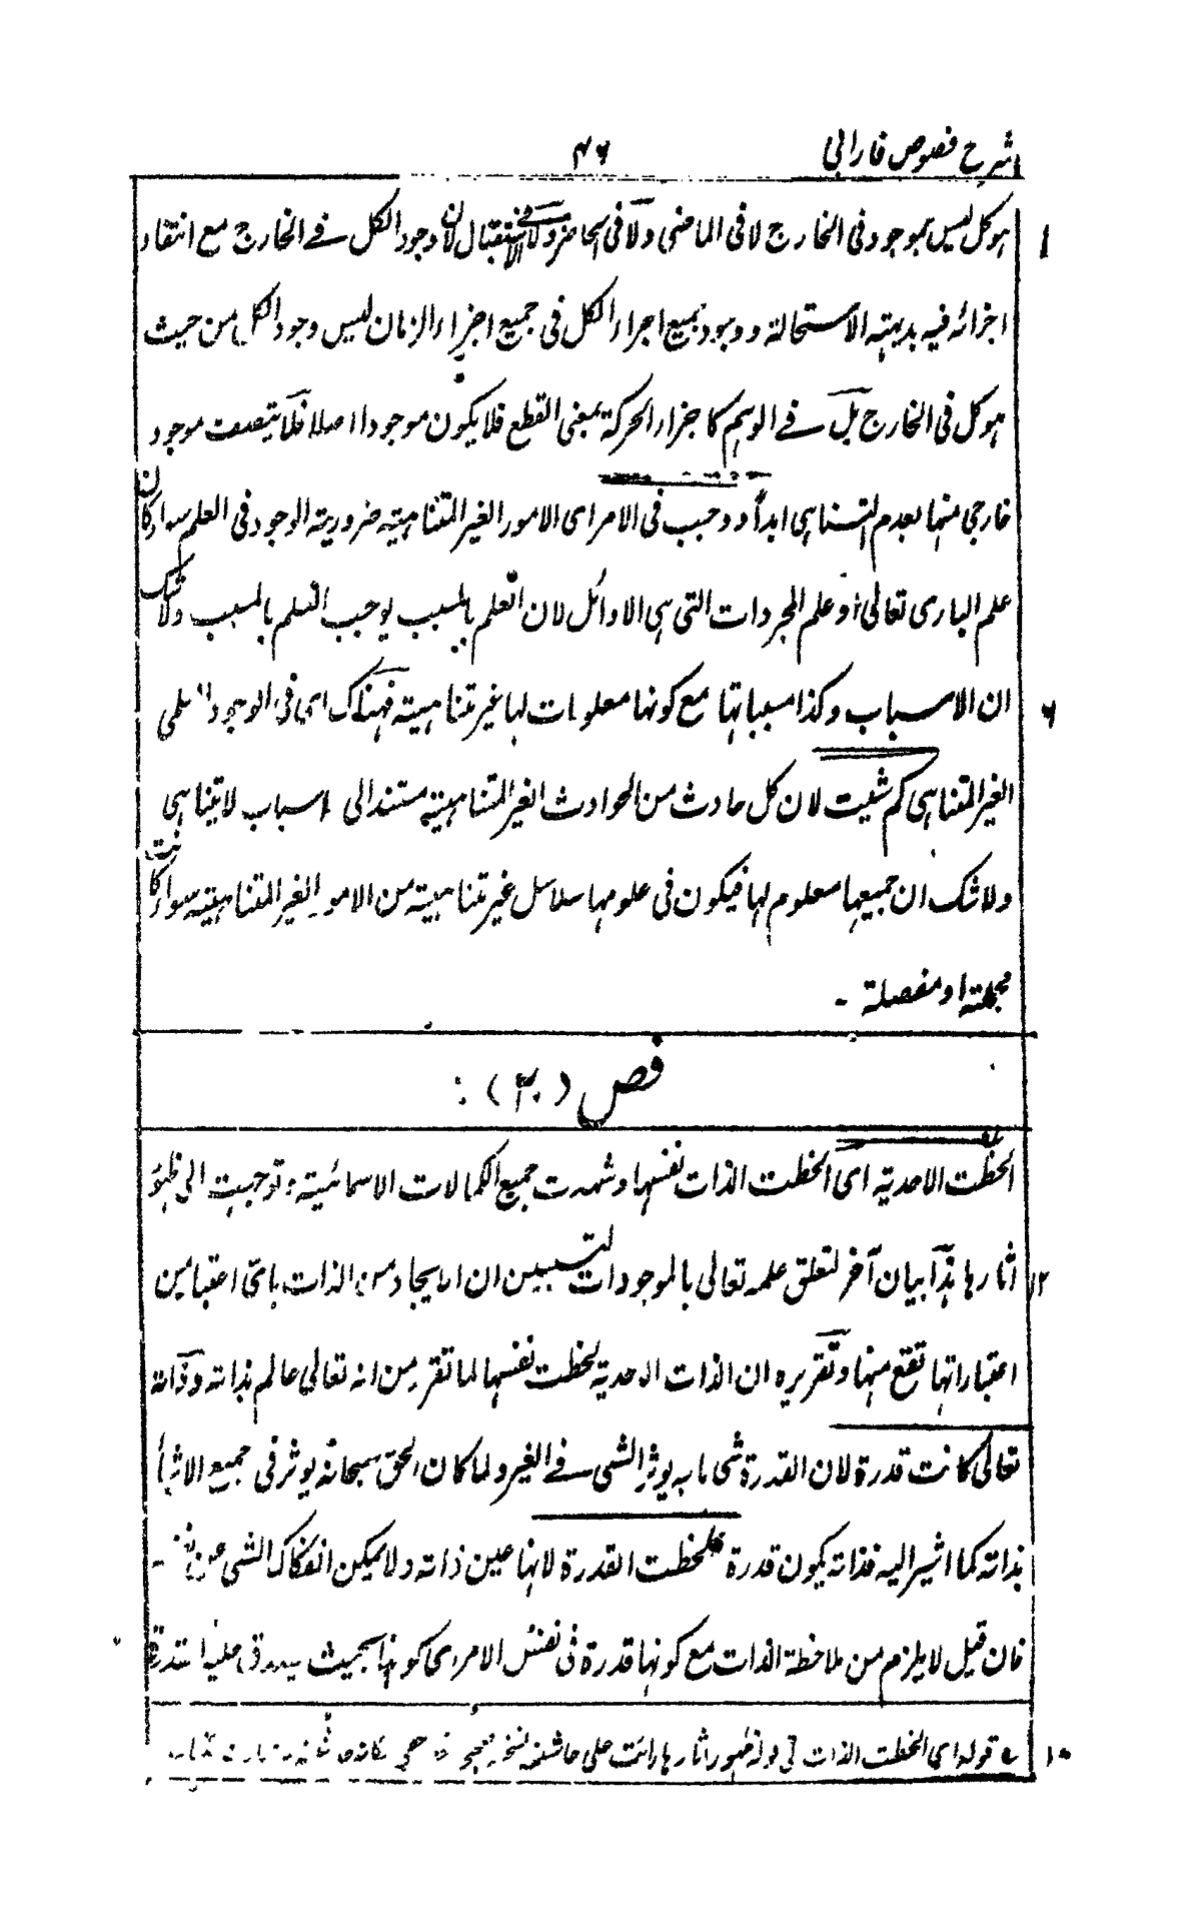 شرح فصوص فارابی
۴۶
هو كل ليس بموجود فى الخارج لا فى الماضى ولا فى الحاضر ولا فى الاستقبال لان وجود الكل فے الخارج مع انتفاء
اجزائه فيه بديهة الاستحالة ووجود جميع اجزاء الكل فى جميع اجزاء الزمان ليس وجود الكل من حيث
هو كل فى الخارج بل فے الوهم كاجزاء الحركة بمعنى القطع فلا يكون موجودا اصلا فلا يتصف موجود
خارجى منها بعدم التناهى ابدا ووجب فى الامر اى الامور الغير المتناهية ضرورية الوجود فى العلم سواء كان
علم البارى تعالى او علم المجردات التى هى الاوائل لان العلم بالسبب يوجب العلم بالمسبب ولا شك
ان الاسباب وكذا مسبباتها مع كونها معلومات لها غير متناهية فهناك اى فى الوجود العلمى
الغير المتناهى كم شئت لان كل حادث من الحوادث الغير المتناهية مستند الى اسباب لا يتناهى
ولا شك ان جميعها معلوم لها فيكون فى علومها سلاسل غير متناهية من الامور الغير المتناهية سواء كانت
مجملة او مفصلة -
فص (۲۰) :
لحظت الاحدية اى لحظت الذات نفسها وشهدت جميع الكمالات الاسمائية وتوجهت الى ظهور
اثارها هذا بيان آخر لتعلق علمه تعالى بالموجودات لتبيين ان الايجاد من الذات باى اعتبار من
اعتباراتها تقع منها وتقريره ان الذات الاحدية لحظت نفسها لما تقرر من انه تعالى عالم بذاته وذاته
تعالى كانت قدرة لان القدرة شى ما به يوثر الشى فے الغير ولما كان الحق سبحانه يوثر فى جميع الاشياء
بذاته كما اشير اليه فذاته يكون قدرة فلحظت القدرة لانها عين ذاته ولا يمكن انفكاك الشى عن نفسه -
فان قيل لا يلزم من ملاحظة الذات مع كونها قدرة فى نفس الامر اى كونها بحيث يصدق عليها القدرة
قوله اى لحظت الذات الى قوله ظهور اثارها رائت على حاشية نسخة